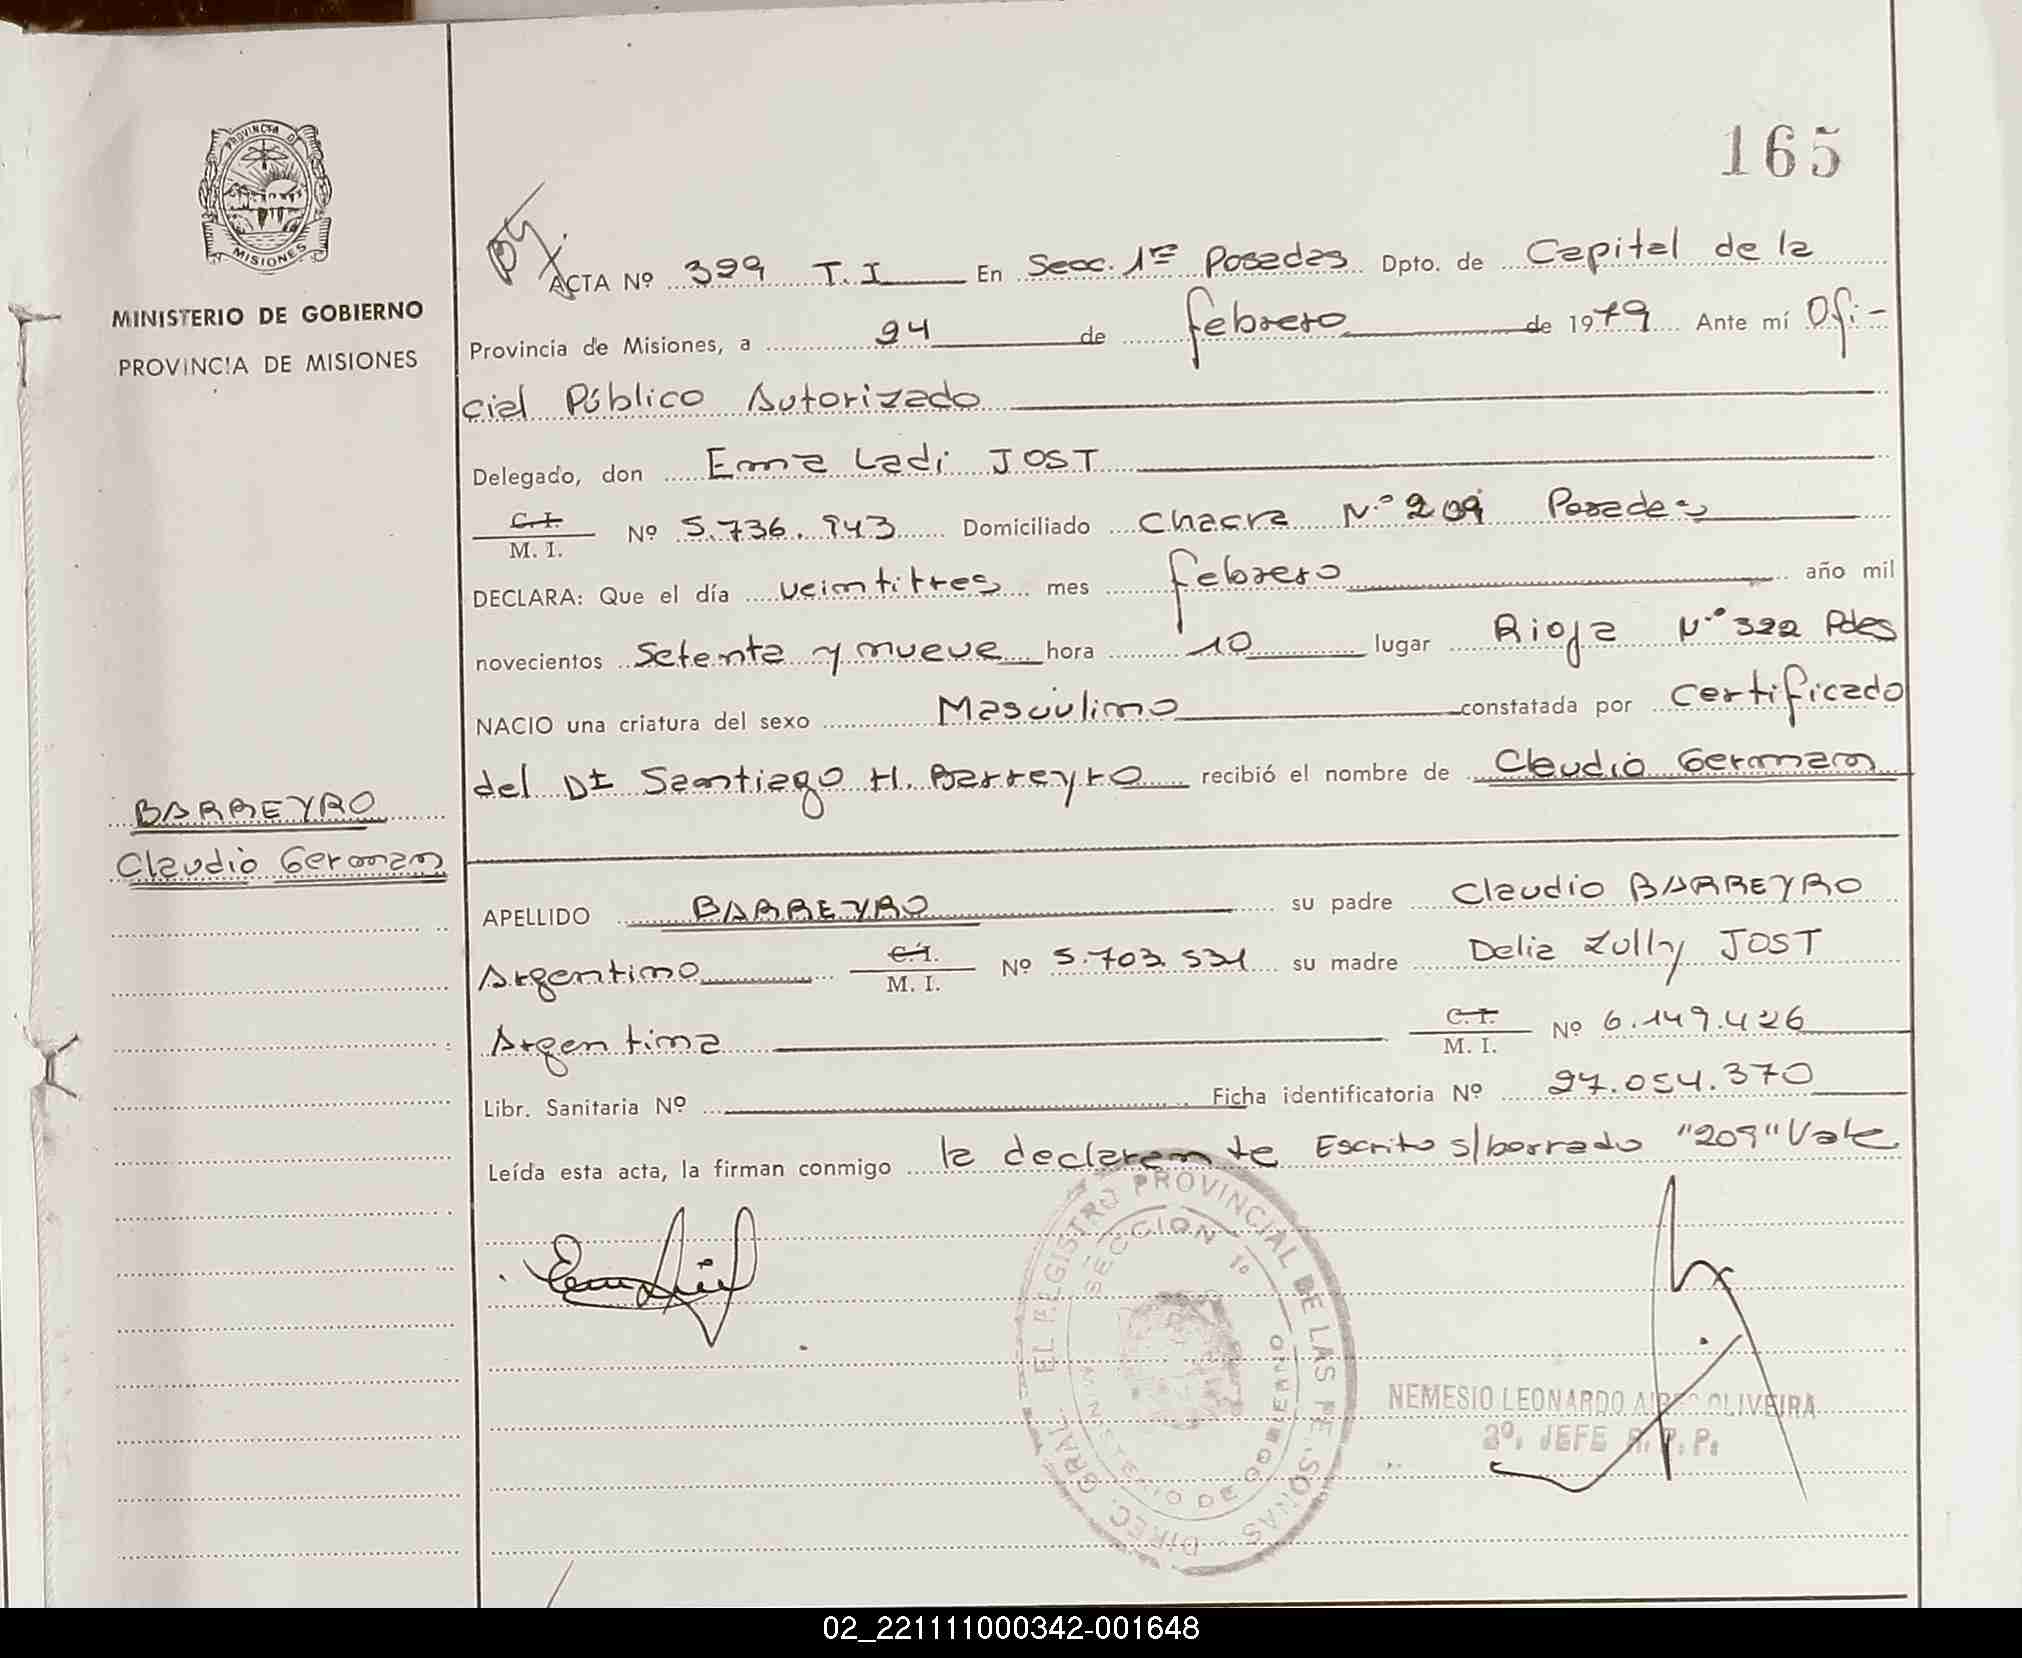 165
PROVINCIA DE
MISIONES
MINISTERIO DE GOBIERNO
PROVINCIA DE MISIONES
ACTA Nº 399 T.I En Secc. 1ra Posadas Dpto. de Capital de la
Provincia de Misiones, a 24 de febrero de 1979 Ante mí Ofi-
cial Público Autorizado
Delegado, don Erna Ladi JOST
C.I.
M. I. Nº 5.736.943 Domiciliado Chacra Nº 209 Posadas
DECLARA: Que el día veintitres mes febrero año mil
novecientos setenta y nueve hora 10 lugar Rioja Nº 322 Pdas
NACIO una criatura del sexo Masculino constatada por certificado
del Dr Santiago H. Barreyro recibió el nombre de Claudio German
BARREYRO
Claudio German
APELLIDO BARREYRO su padre Claudio BARREYRO
Argentino C.I. M. I. Nº 5.703.531 su madre Delia Zully JOST
Argentina C.I. M. I. Nº 6.149.426
Libr. Sanitaria Nº Ficha identificatoria Nº 27.054.370
Leída esta acta, la firman conmigo la declarante Escrito s/borrado "209" Vale
DIREC. GRAL. EL REGISTRO PROVINCIAL DE LAS PERSONAS
SECCION 1º
MINISTERIO DE GOBIERNO
NEMESIO LEONARDO OLIVEIRA
2º. JEFE R. P. P.
02_221111000342-001648